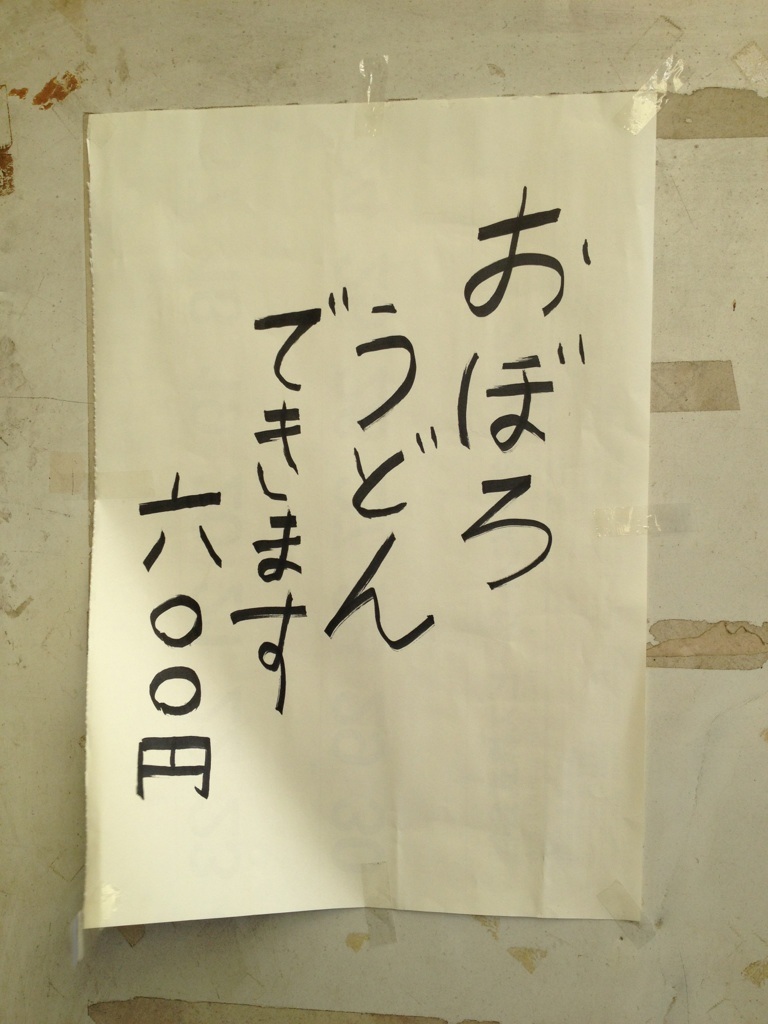 おぼろ
うどん
できます
六〇〇円